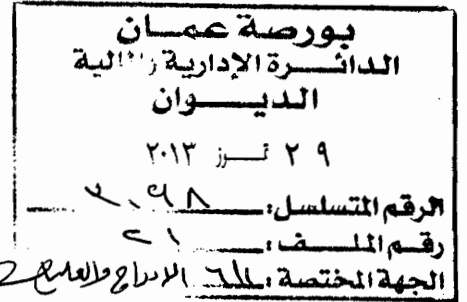 بورصة عمان
الدائرة الإدارية والمالية
الديوان
٢٩ تموز ٢٠١٣
الرقم المتسلسل:
رقم الملف: ٢١
الجهة المختصة: الإدراج والعمليات